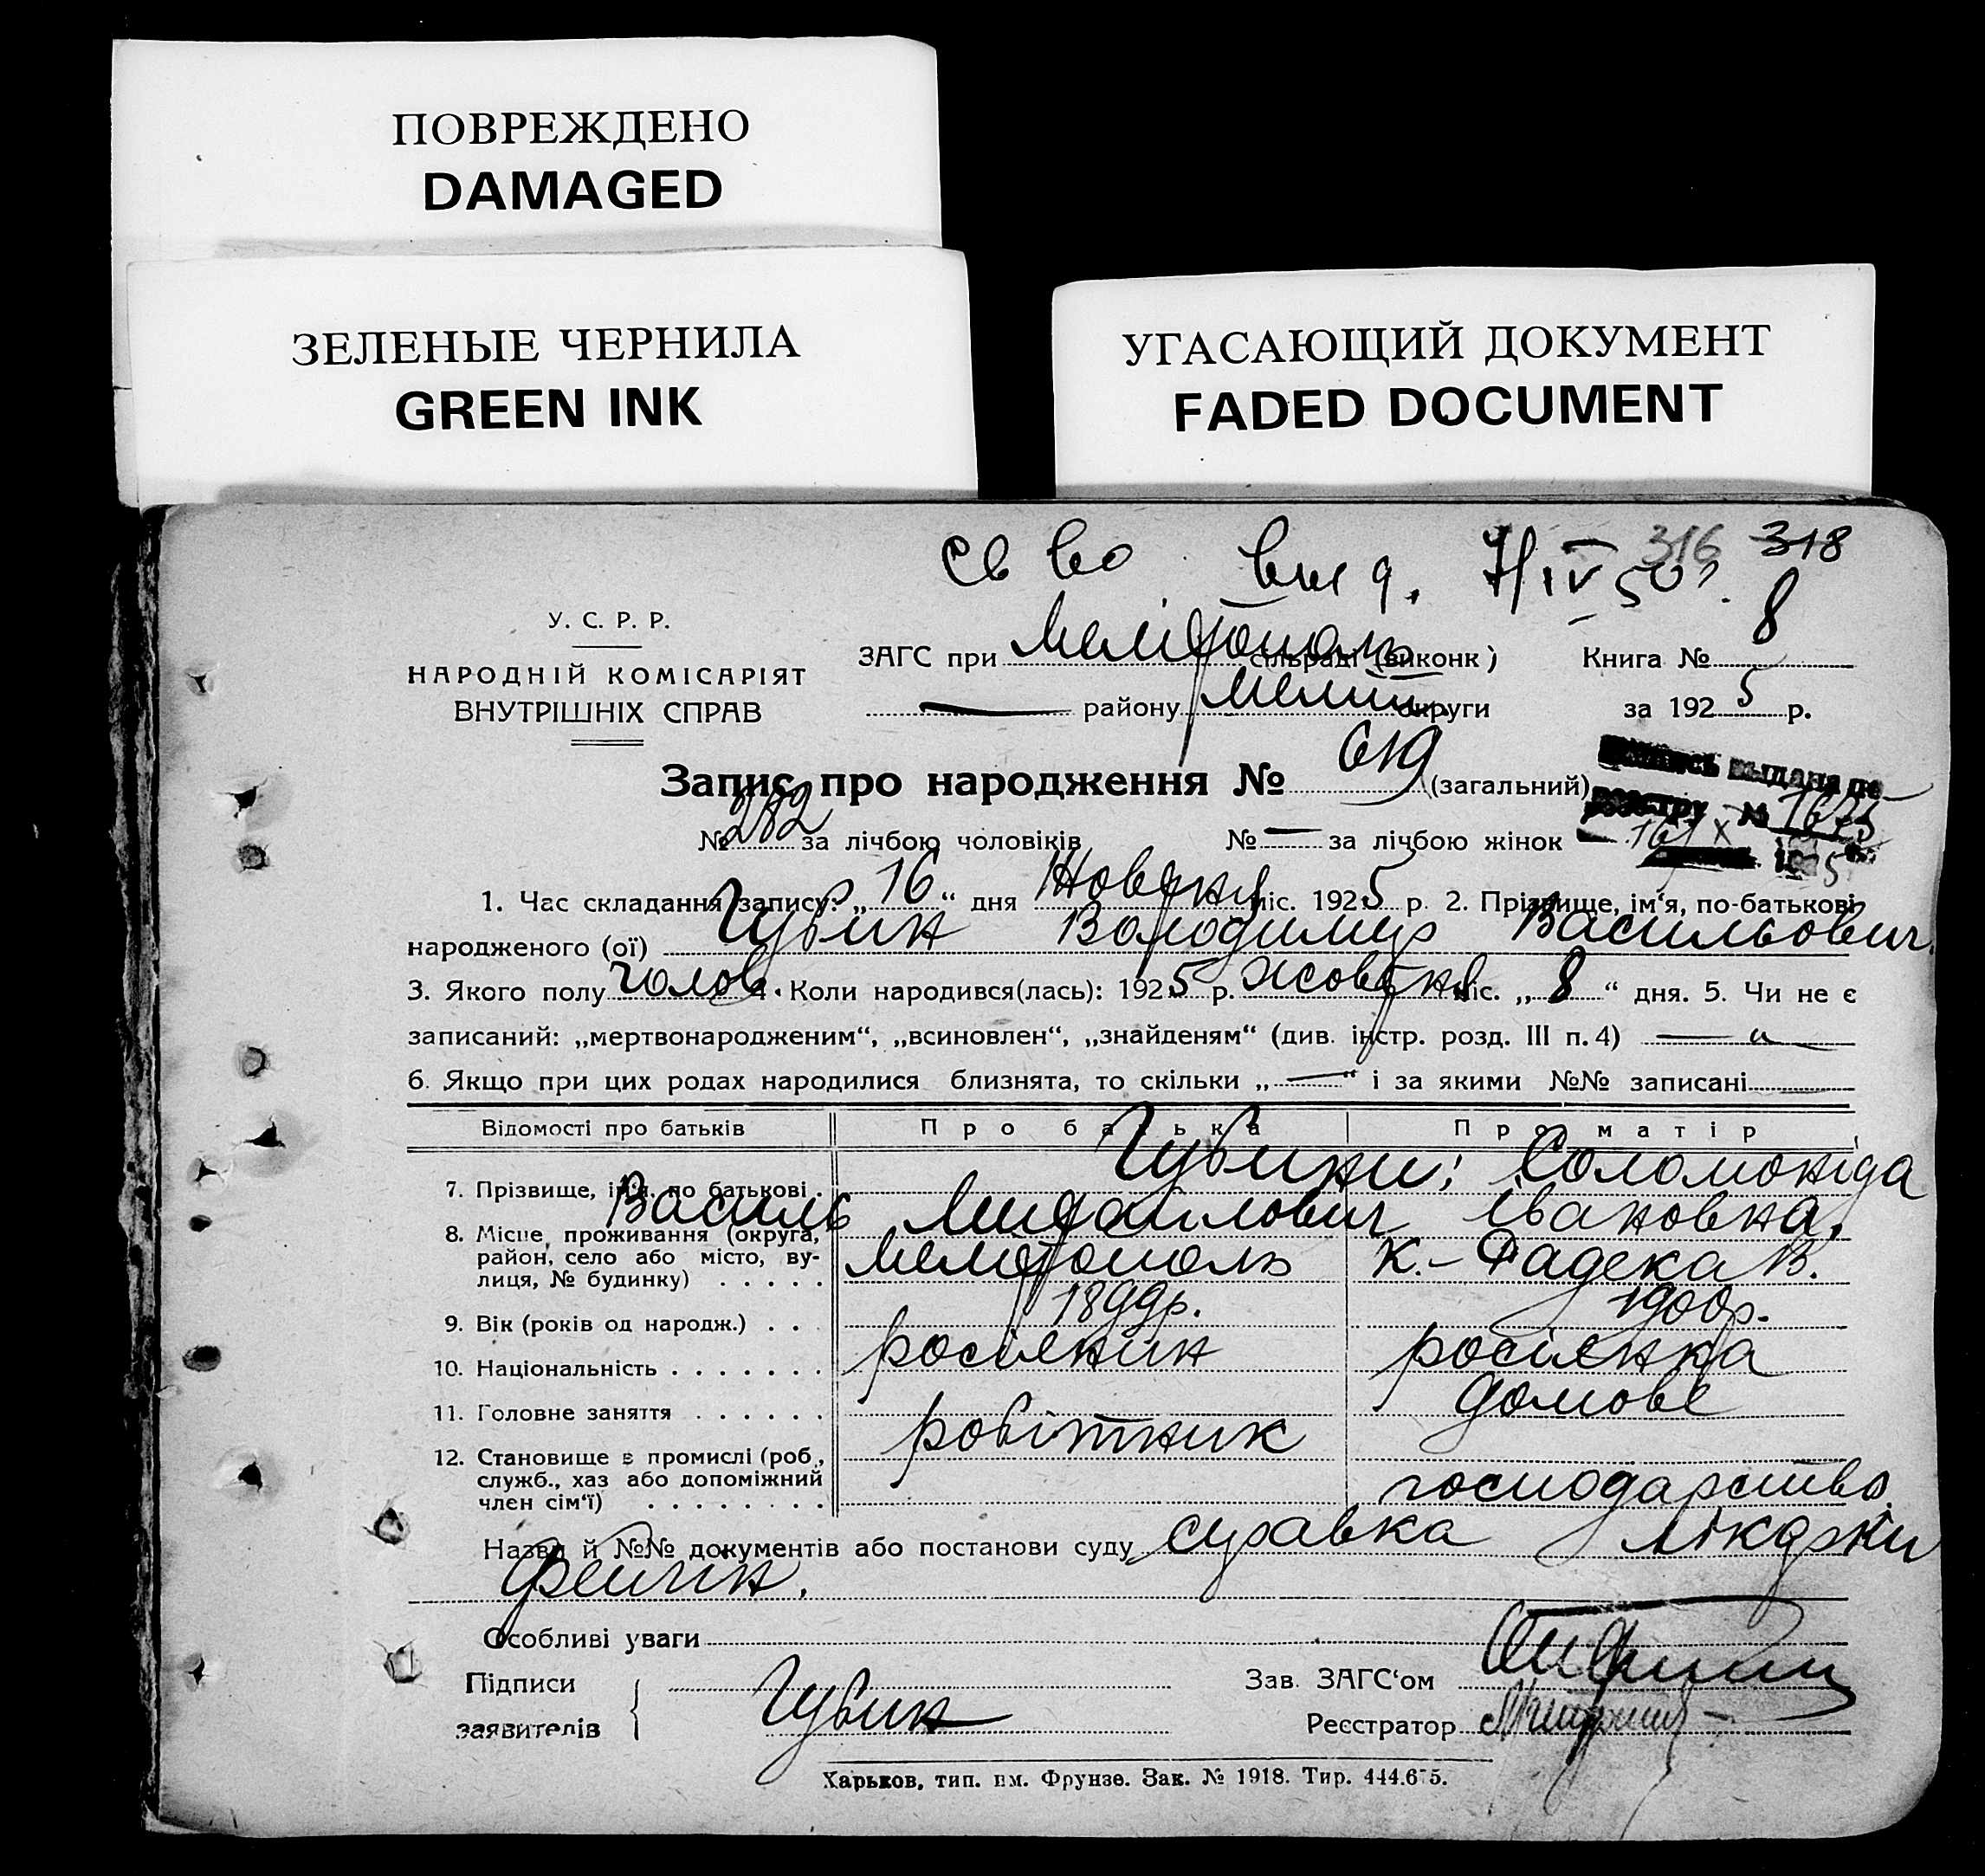 ПОВРЕЖДЕНО
DAMAGED
ЗЕЛЕНЫЕ ЧЕРНИЛА
GREEN INK
УГАСАЮЩИЙ ДОКУМЕНТ
FADED DOCUMENT
316 318
Св во выд. 7/IV 50
У. С. Р. Р.
НАРОДНІЙ КОМІСАРІЯТ
ВНУТРІШНІХ СПРАВ
ЗАГС при Мелітополь сільраді (виконк) Книга № 8
— району Меліт. округи за 1925 р.
Запис про народження № 619 (загальний)
выдана по
реестру № 1675
№ 282 за лічбою чоловіків № — за лічбою жінок
1. Час складання запису: „16“ дня Жовтня міс. 1925 р. 2. Прізвище, ім‘я, по-батькові
народженого (ої) Губин Володимир Васильович
3. Якого полу чолов. 4. Коли народився(лась): 1925 р. жовтня міс. „8“ дня. 5. Чи не є
записаний: „мертвонародженим“, „всиновлен“, „знайденям“ (див. інстр. розд. III п. 4) —
6. Якщо при цих родах народилися близнята, то скільки „—“ і за якими №№ записані
Відомості про батьків Про батька Про матір
7. Прізвище, ім‘я, по батькові . Губини: Соломонида
Василь Михайлович Івановна,
8. Місце, проживання (округа,
район, село або місто, ву-
лиця, № будинку) . . . . . Мелітополь К.-
9. Вік (років од народж.) . . . 1899р. 1900р.
10. Національність . . . . . . . росіянин росіянка
11. Головне заняття . . . . . . робітник домове
12. Становище в промислі (роб.,
служб., хаз або допоміжний
член сім‘ї) . . . . . . . . господарство
Назви й №№ документів або постанови суду справка лікарки
Фейгін.
Особливі уваги
Підписи
заявителів Губин
Зав. ЗАГС‘ом
Реєстратор
Харьков, тип. им. Фрунзе. Зак. № 1918. Тир. 444.675.